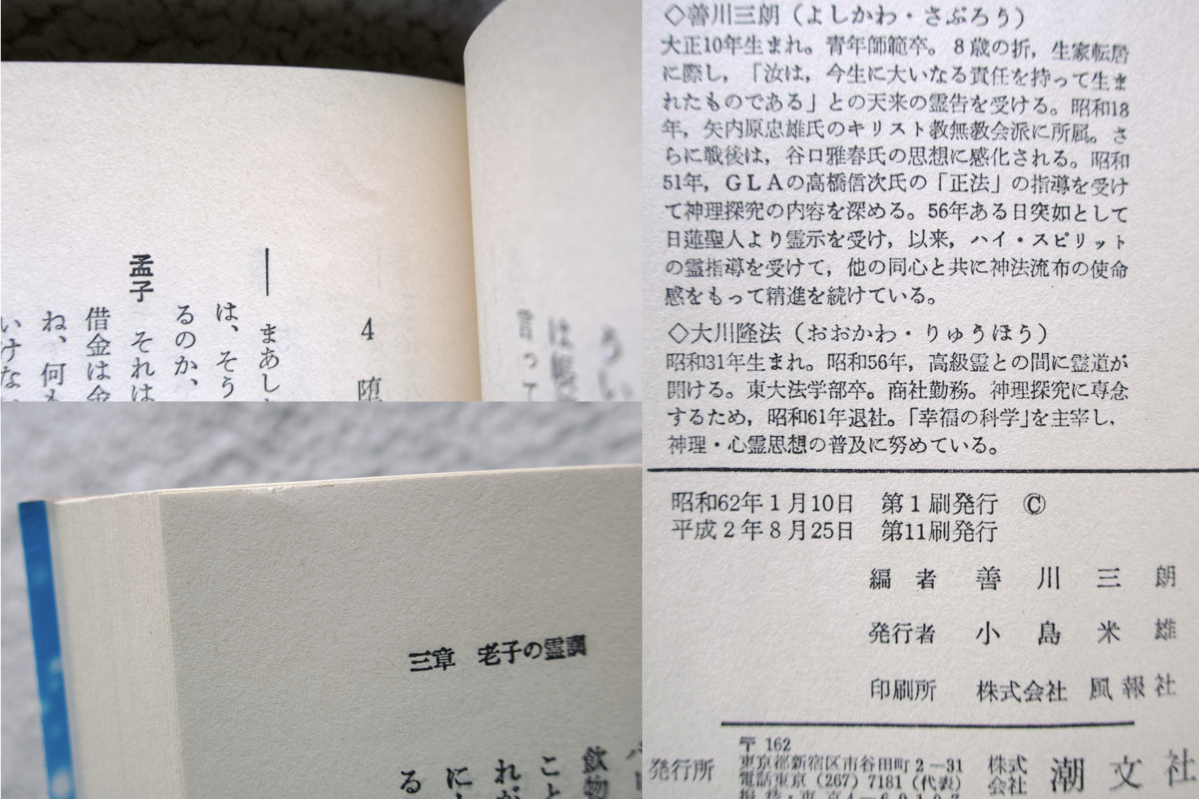 4 堕
──まあし
は、そう
るのか、
孟子 それは
借金は金
ね、何も
いけない
言って
三章 老子の霊調
飲物
こと
れが
に
る
◇善川三朗（よしかわ・さぶろう）
大正10年生まれ。青年師範卒。8歳の折，生家転居
に際し，「汝は，今生に大いなる責任を持って生ま
れたものである」との天来の霊告を受ける。昭和18
年，矢内原忠雄氏のキリスト教無教会派に所属。さ
らに戦後は，谷口雅春氏の思想に感化される。昭和
51年，GLAの高橋信次氏の「正法」の指導を受け
て神理探究の内容を深める。56年ある日突如として
日蓮聖人より霊示を受け，以来，ハイ・スピリット
の霊指導を受けて，他の同心と共に神法流布の使命
感をもって精進を続けている。
◇大川隆法（おおかわ・りゅうほう）
昭和31年生まれ。昭和56年，高級霊との間に霊道が
開ける。東大法学部卒。商社勤務。神理探究に専念
するため，昭和61年退社。「幸福の科学」を主宰し，
神理・心霊思想の普及に努めている。
昭和62年1月10日 第1刷発行 ©
平成2年8月25日 第11刷発行
編者 善川三朗
発行者 小島米雄
印刷所 株式会社 風報社
〒162
発行所 東京都新宿区市谷田町2－31 株式会社 潮文社
電話東京（267）7181（代表）